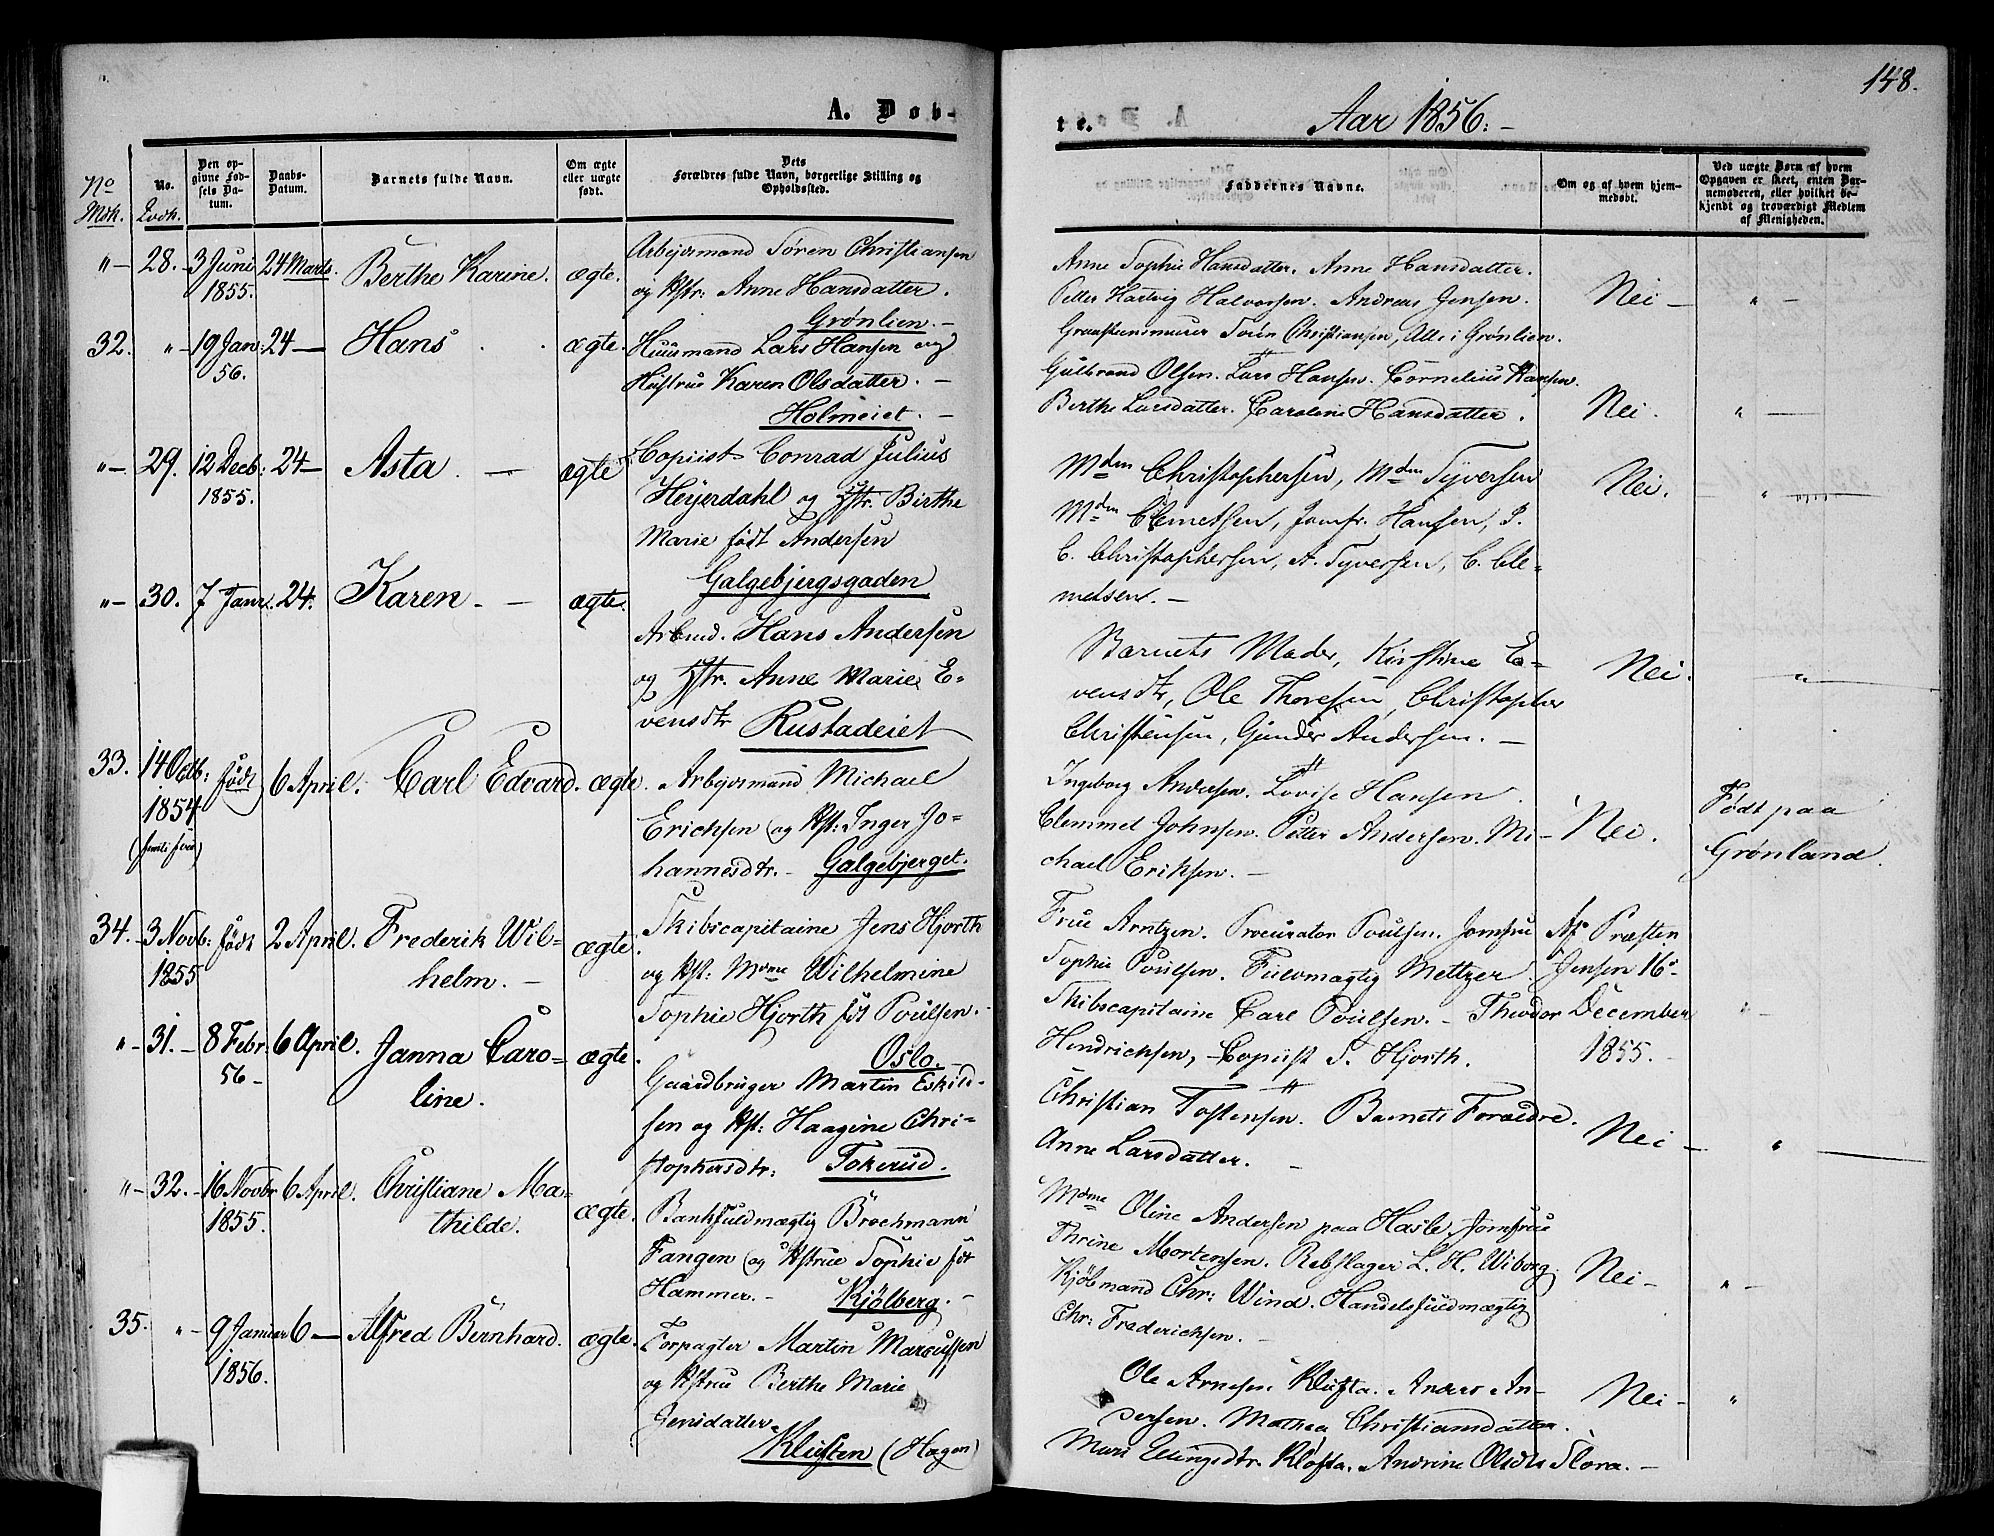 148.
A. Døb-
te.
Aar 1856. -
No Mdk.
No. Qvdk.
Den op-
givne Fød-
sels Da-
tum.
Daabs-
Datum.
Barnets fulde Navn.
Om ægte
eller uægte
født.
Dets
Forældres fulde Navn, borgerlige Stilling og
Opholdssted.
Faddernes Navne.
Om og af hvem hjem-
medøbt.
Ved uægte Børn af hvem
Opgaven er skeet, enten Bar-
nemoderen, eller hvilket be-
kjendt og troværdigt Medlem
af Menigheden.
" - 28. - 3 Juni 1855. 24 Marts. Berthe Karine. ægte.
Arbejdsmand Søren Christiansen
og Hstr: Anne Hansdatter.
Grønlien. -
Anne Sophie Hansdatter. Anne Hansdatter.
Petter Hartvig Halvorsen. Andreas Jensen.
Graasteensmurer Søren Christiansen, Alle i Grønlien.
Nei - " -
32. " - 19 Jan: 56. 24 - Hans ægte.
Huusmand Lars Hansen og
Hustrue Karen Olsdatter. -
Holmeiet. -
Gulbrand Olsen. Lars Hansen. Cornelius Hansen.
Berthe Larsdatter. Caroline Hansdatter.
Nei. " -
" - 29. 12 Decb: 1855. 24 - Asta. - ægte
Copiist Conrad Julius
Heyerdahl og Hstr. Birthe
Marie født Andersen
Galgebjergsgaden
Mdm Christophersen, Mdm Syversen
Mdm Clemetsen, Jomfr. Hansen, P.
C. Christophersen, A. Syversen, C. Cle-
metsen. -
Nei. "
" - 30. 7 Janr. 24. Karen. - ægte.
Arbmd. Hans Andersen
og Hstr. Anne Marie E-
vensdtr Rustadeiet
Barnets Moder, Kirstine E-
vensdtr, Ole Thoresen, Christopher
Christensen, Gunder Andersen. -
Nei. "
33. 14 Octb: 1854 født 6 April. Carl Edvard. ægte.
Arbejdsmand Michael
Erichsen og Hst: Inger Jo-
hannesdtr. - Galgebjerget.
Ingeborg Andersen. Lovise Hansen.
Clemmet Johnsen. Petter Andersen. Mi-
chael Eriksen. -
Nei.
Født paa
Grønland.
34. 3 Novb: 1855 født 2 April. Frederik Wil-
helm. - ægte.
Skibscapitaine Jens Hjorth
og Hst: Mdme Wilhelmine
Sophie Hjorth fdt Poulsen. -
Oslo. -
Frue Arntzen. Procurator Poulsen. Jomfrue
Sophie Poulsen. Fuldmægtig Meltzer.
Skibscapitaine Carl Poulsen. - Theodor
Hendrichsen, - Copiist S. Hjorth.
Af Præsten
Jensen 16
December
1855. -
" -
" - 31. - 8 Febr: 56 - 6 April. Janna Caro-
line. ægte.
Gaardbruger Martin Eskild-
sen og Hst: Haagine Chri-
stophersdtr: Tokerud.
Christian Tostensen. Barnets Forældre.
Anne Larsdatter. -
Nei - "
" - 32. - 16 Novbr 1855. 6 April. Christiane Ma-
thilde. ægte.
Bankfuldmægtig Brochmann
Fangen og Hstrue Sophie fdt
Hammer. - Kjølberg. -
Mdme Oline Andersen paa Hasle. Jomfrue
Thrine Mortensen. Rebslager L. H. Wiborg.
Kjøbmand Chr: Wind. Handelsfuldmægtig
Chr: Frederichsen. -
Nei - " -
35. " - 9 Januar 1856. 6 - Alfred Bernhard. ægte.
Forpagter Martin Marcussen
og Hstrue Berthe Marie
Jensdatter.
Kluften (Hagen)
Ole Arnesen Kluften. Anders An-
dersen. Mathea Christiansdatter.
Mari Ellingsdtr. Kløfta. Andrine Olsdtr Flora. -
Nei - "